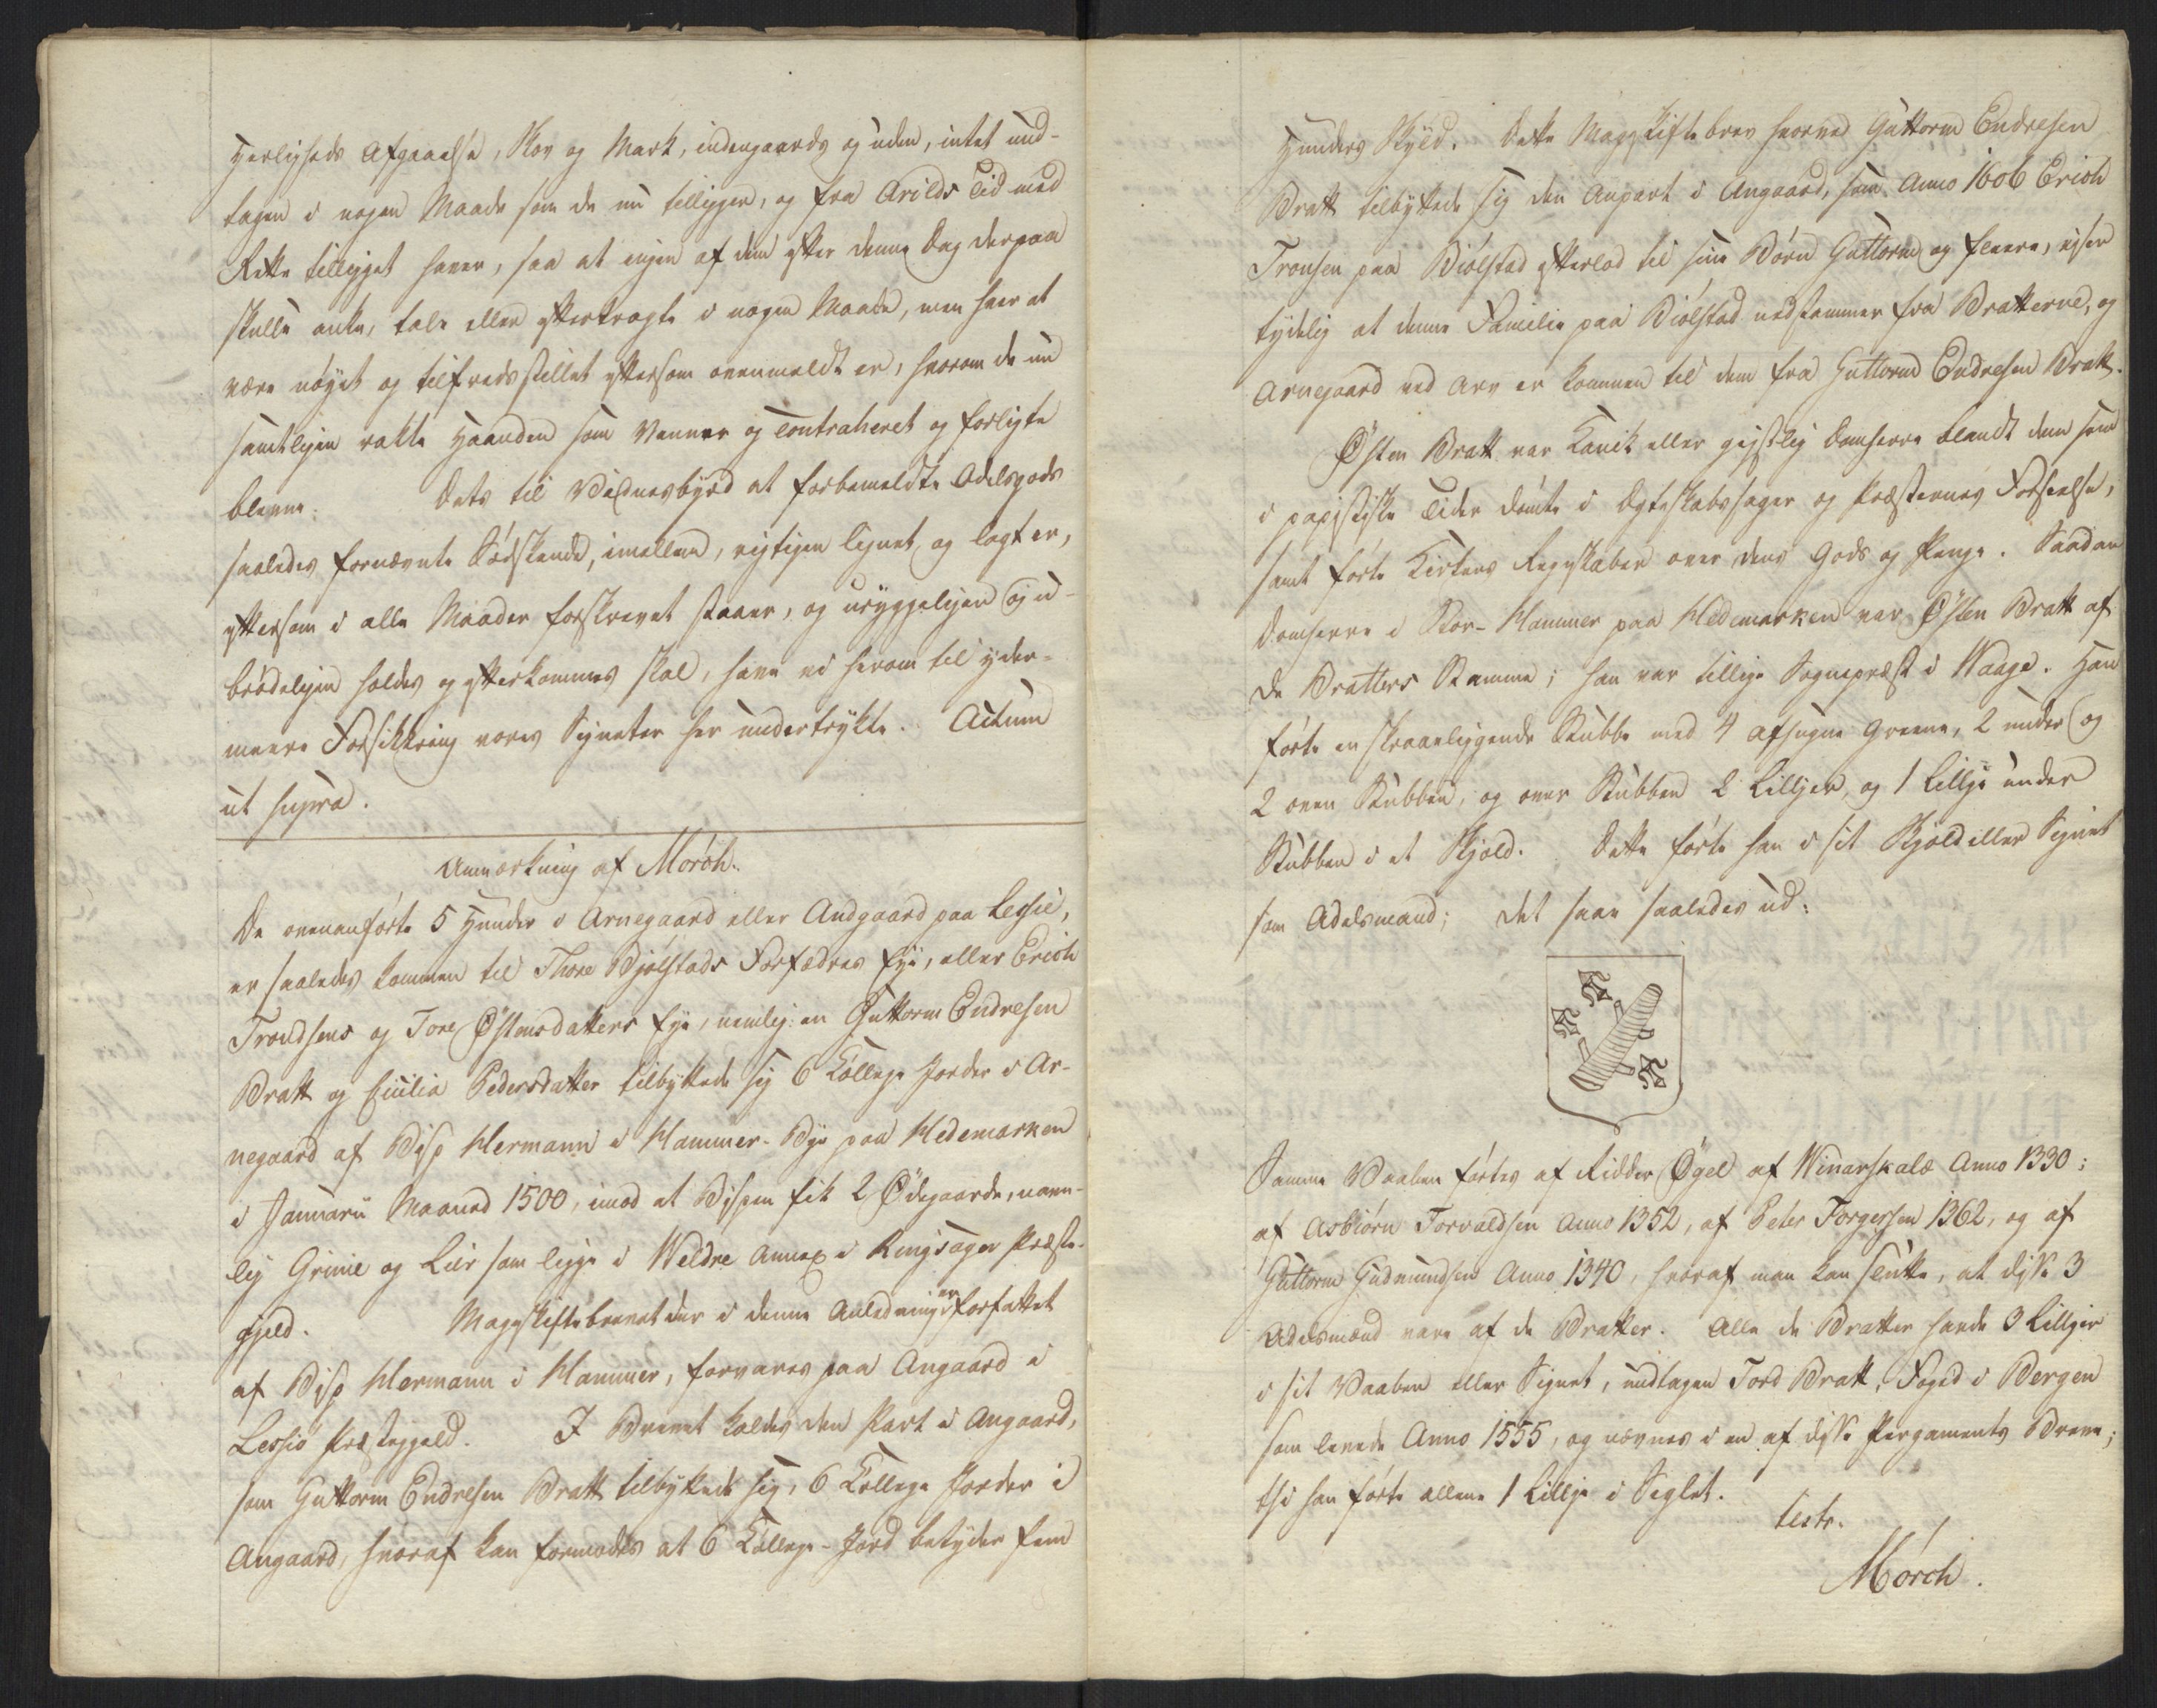 Herligheds Afgaaelse, Skov og Mark, indengaards og uden, intet und-
tagen i nogen Maade som de nu tilligger, og fra Arilds Tid med
Rette tilligget haver, saa at ingen af dem efter denne Dag derpaa
skulle anke, tale eller eftertragte i nogen Maade, men haver at
være nöyet og tilfredsstillet eftersom ovenmeldt er, hvorom de nu
samtligen rakte Haanden som Venner og contraheret og forligte
bleve. Dets til Vidnesbyrd at forbemeldte Odelsgods
saaledes fornævnte Södskende, imellem, rigtigen lignet og lagt er,
eftersom i alle Maader forskrevet staaer, og uryggeligen og u-
brödeligen holdes og efterkommes skal, have vi herom til yder-
meere Forsikkring vores Signeter her undertrykte. Actum
ut supra.
Anmærkning af Mörch.
De ovenanförte 5 Hunder i Arnegaard eller Andgaard paa Lessie,
er saaledes kommen til Thore Bjölstads Forfædres Eye, eller Erich
Trondsens og Tore Östensdatters Eye, nemlig: en Guttorm Endresen
Bratt og Cicilia Pedersdatter tilbyttede sig 6 Kollege Jorder i Ar-
negaard af Bisp Hermann i Hammer-Bye paa Hedemarken
i Januarii Maaned 1500, imod at Bispen fik 2 Ödegaarde, navn-
lig Grime og Lier som ligge i Weldre Annex i Ringsager Præste-
gjeld. Mageskiftebrevet der i denne Anledning er forfattet
af Bisp Hermann i Hammer, forvares paa Angaard i
Lessiö Præstegjeld. I Brevet kaldes den Part i Angaard,
som Guttorm Endresen Bratt tilbyttede sig, 6 Kollege Jorder i
Angaard, hvoraf kan formodes at 6 Kollege-Jord betyder fem
Hunders Skyld. Dette Mageskiftebrev hvorved Guttorm Endresen
Bratt tilbyttede sig den Anpart i Angaard, som Anno 1606 Erich
Tronsen paa Biölstad efterlod til sine Börn Guttorm og fleere, viser
tydelig at denne Familie paa Biölstad nedstammer fra Bratterne, og
Arnegaard ved Arv er kommen til dem fra Guttorm Endresen Bratt.
Östen Bratt var Kanik eller geistlig Domherre blandt dem som
i papistiske Tider dömte i Ægteskabssager og Præsternes Forseelse,
samt förte Kirkens Regnskaber over dens Gods og Penge. Saadan
Domherre i Stor-Hammer paa Hedemarken var Östen Bratt af
de Bratters Stamme; han var tillige Sognepræst i Waage. Han
förte en skraaliggende Stubbe med 4 afhugne Greene, 2 under og
2 oven Stubben, og over Stubben 2 Lillier, og 1 Lillie under
Stubben i et Skjold. Dette förte han i sit Skjold eller Signet
som Adelsmand; det saae saaledes ud:
Samme Vaaben förtes af Ridder Ögel af Winarskalæ Anno 1330;
af Asbiörn Torvaldsen Anno 1352, af Peter Torgersen 1362, og af
Guttorm Gudmundsen Anno 1340, hvoraf man kan slutte, at disse 3
Adelsmænd vare af de Bratter. Alle de Bratter havde 3 Lillier
i sit Vaaben eller Signet, undtagen Tord Bratt, Foged i Bergen
som levede Anno 1555, og nævnes i en af disse Pergaments Breve;
thi han förte allene 1 Lillie i Seglet.
test.
Mörch.